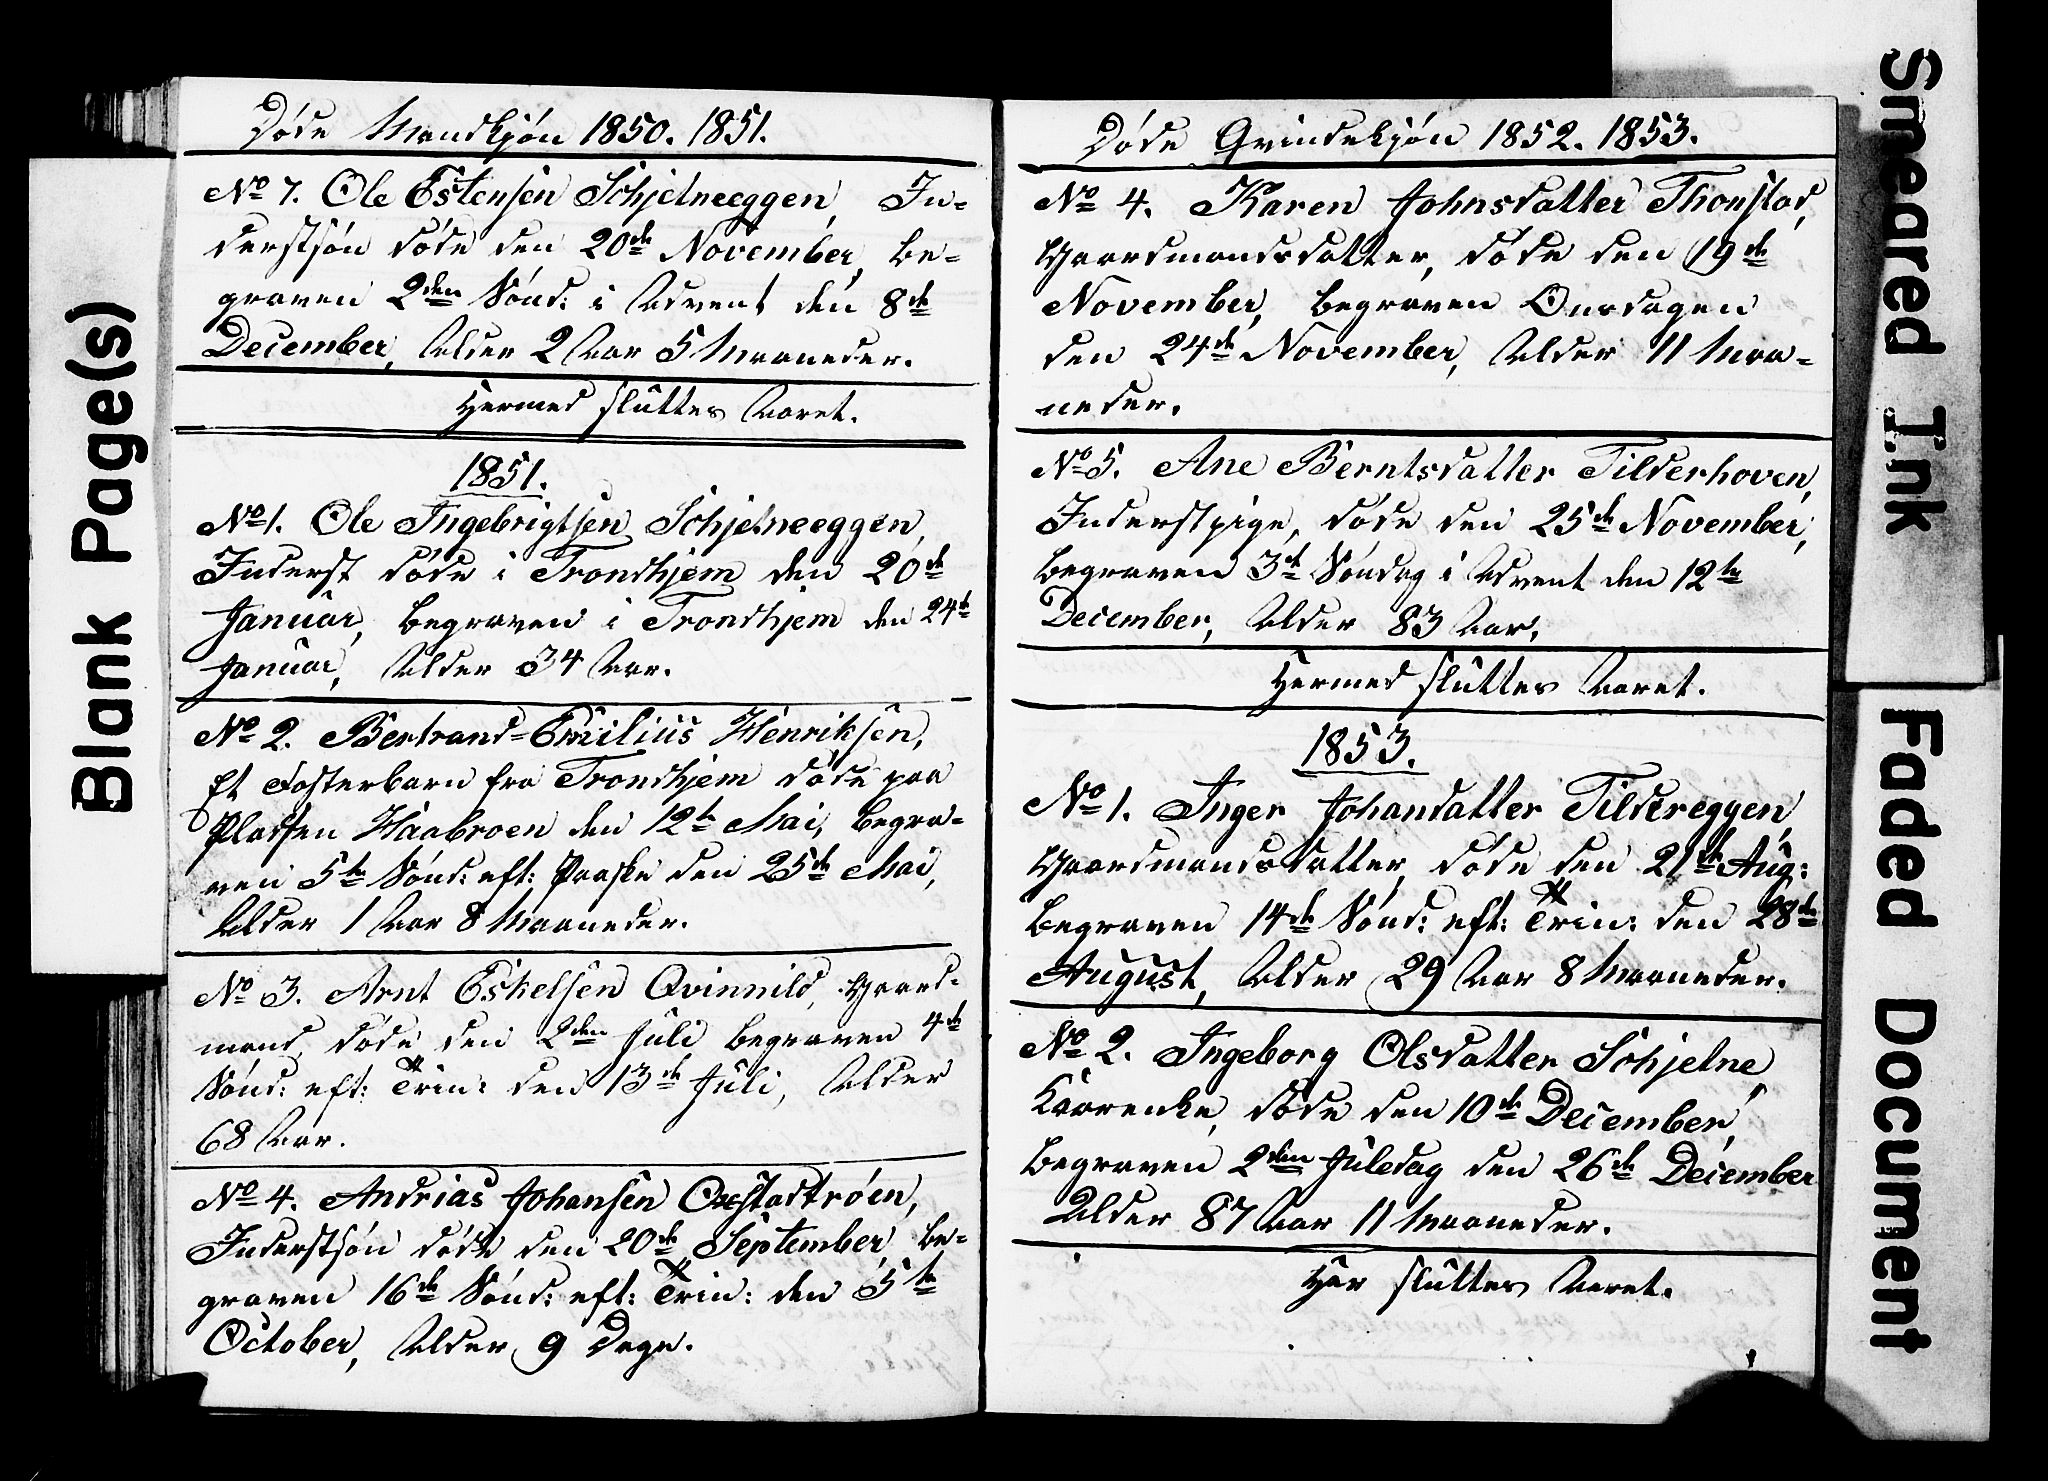 Blank Page(s)
Døde Mandkjøn 1850. 1851.
No 7. Ole Estensen Schjelneeggen, In-
derstsøn døde den 20de November, be-
graven 2den Sønd: i Advent den 8de
December, Alder 2 Aar 5 Maaneder.
Hermed sluttes Aaret.
1851.
No 1. Ole Ingebrigtsen Schjelneeggen,
Inderst døde i Trondhjem den 20de
Januar, begraven i Trondhjem den 24de
Januar, Alder 34 Aar.
No 2. Bertrand-Emilius Henriksen,
Et Fosterbarn fra Trondhjem døde paa
Pladsen Haabroen den 12te Mai, begra-
ven 5te Sønd: eft: Paaske den 25de Mai,
Alder 1 Aar 8 Maaneder.
No 3. Arnt Eskelsen Qvinnild, Gaard-
mand, døde den 2den Juli begraven 4de
Sønd: eft: Trin: den 13de Juli, Alder
68 Aar.
No 4. Andrias Johansen
Inderstsøn døde den 20de September be-
graven 16de Sønd: eft: Trin: den 5te
October, Alder 9 Dage.
Døde Qvindekjøn 1852. 1853.
No 4. Karen Johnsdatter Thonstad,
Gaardmandsdatter, døde den 19de
November, begraven Onsdagen
den 24de November, Alder 11 Maa-
neder.
No 5. Ane Berntsdatter Tilderhoven,
Inderstpige, døde den 25de November,
begraven 3de Søndag i Advent den 12te
December, Alder 83 Aar.
Hermed sluttes Aaret.
1853.
No 1. Inger Johansdatter Tildereggen
Gaardmandsdatter, døde den 21de Aug:
begraven 14de Sønd: eft: Trin: den 28de
August, Alder 29 Aar 8 Maaneder.
No 2. Ingeborg Olsdatter Schjelne,
Kaarenke, døde den 10de December,
begraven 2den Juledag den 26de December
Alder 87 Aar 11 Maaneder.
Her sluttes Aaret.
Smeared Ink
Faded Document